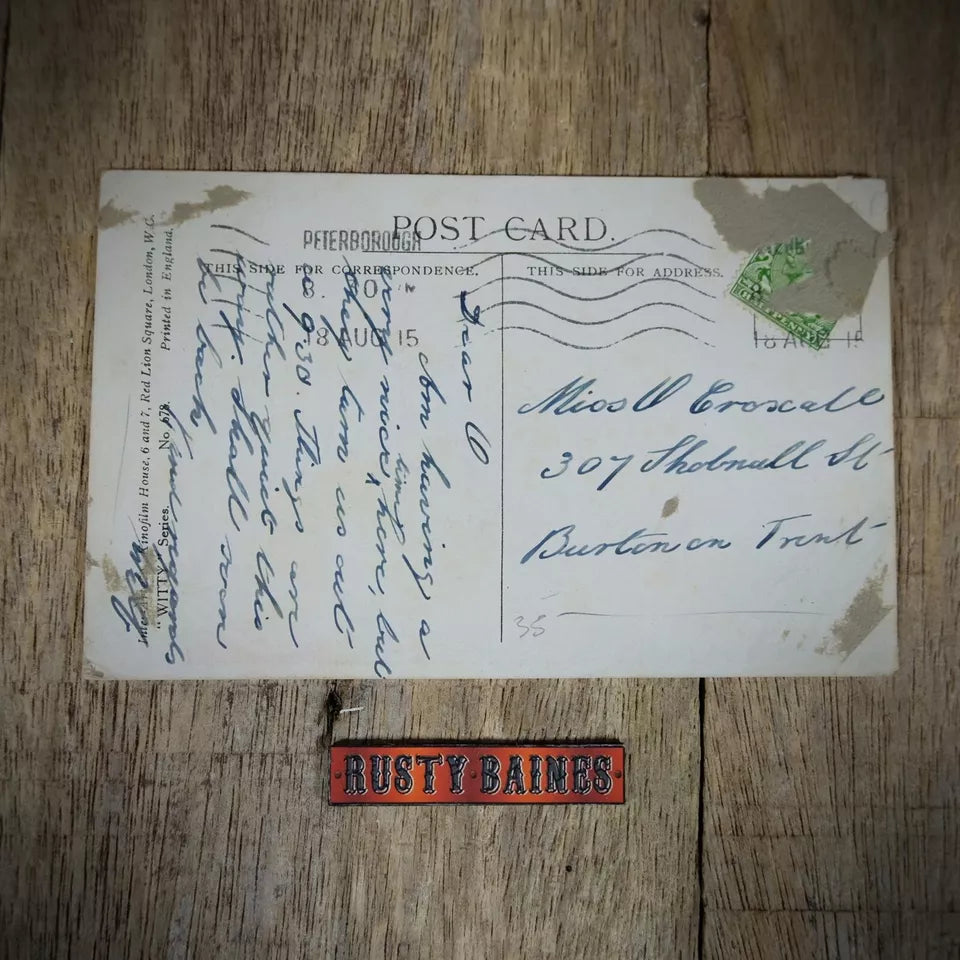 POST CARD.
PETERBOROUGH
THIS SIDE FOR CORRESPONDENCE.
THIS SIDE FOR ADDRESS.
18 AUG 15
Dear O
Am having a
very nice time here, but
they turn us out
a 9.30. Things are
rather quiet this
Shall soon
be back
Kind regards
Miss O Croxall
307 Shobnall St
Burton on Trent
35
Kinofilm House, 6 and 7, Red Lion Square, London, W.C.
"WITTY" Series. No. 678. Printed in England.
RUSTY·BAINES